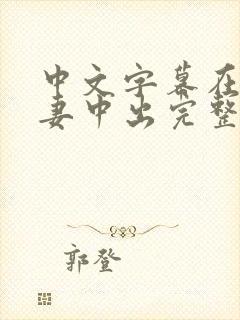 中文字幕在
妻中出完整
郭登